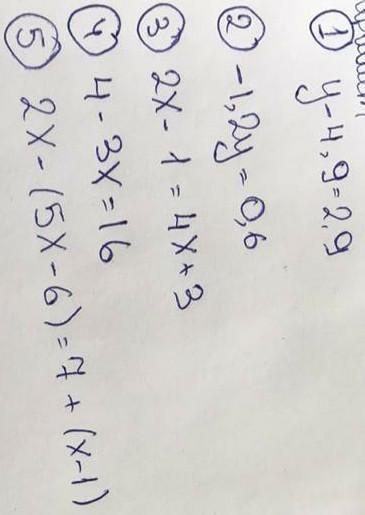 ① y - 4,9 = 2,9
② -1,2y = 0,6
③ 2x - 1 = 4x + 3
④ 4 - 3x = 16
⑤ 2x - (5x - 6) = 7 + (x - 1)